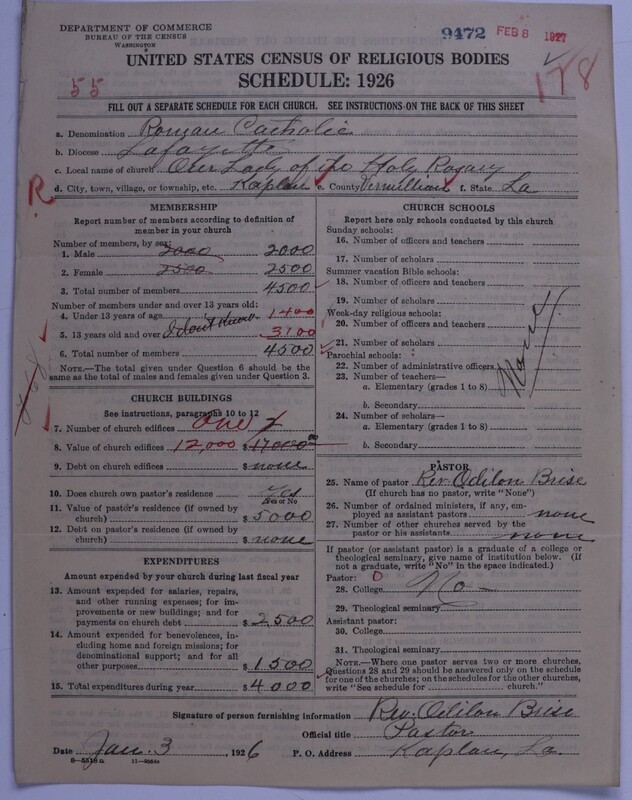 DEPARTMENT OF COMMERCE
BUREAU OF THE CENSUS
WASHINGTON
9472 FEB 8 1927
UNITED STATES CENSUS OF RELIGIOUS BODIES
55 SCHEDULE: 1926 178
FILL OUT A SEPARATE SCHEDULE FOR EACH CHURCH. SEE INSTRUCTIONS ON THE BACK OF THIS SHEET
a. Denomination Roman Catholic
b. Diocese Lafayette
c. Local name of church Our Lady of the Holy Rosary
R d. City, town, village, or township, etc. Kaplan e. County Vermillion f. State La
MEMBERSHIP
Report number of members according to definition of
member in your church
Number of members, by sex:
1. Male 2000 2000
2. Female 2500 2500
3. Total number of members 4500
Number of members under and over 13 years old:
4. Under 13 years of age 1400
5. 13 years old and over I don't know 3100
6. Total number of members 4500
NOTE.—The total given under Question 6 should be
same as the total of males and females given under Question 3.
CHURCH BUILDINGS
See instructions, paragraphs 10 to 12
7. Number of church edifices One
8. Value of church edifices 12,000 $17000.00
9. Debt on church edifices $ none
10. Does church own pastor's residence Yes
Yes or No
11. Value of pastor's residence (if owned by
church) $ 5000
12. Debt on pastor's residence (if owned by
church) $ none
EXPENDITURES
Amount expended by your church during last fiscal year
13. Amount expended for salaries, repairs,
and other running expenses; for im-
provements or new buildings; and for
payments on church debt $ 2500
14. Amount expended for benevolences,
including home and foreign missions; for
denominational support; and for all
other purposes $ 1500
15. Total expenditures during year $ 4000
CHURCH SCHOOLS
Report here only schools conducted by this church
Sunday schools:
16. Number of officers and teachers
17. Number of scholars
Summer vacation Bible schools:
18. Number of officers and teachers
19. Number of scholars
Week-day religious schools:
20. Number of officers and teachers
21. Number of scholars
Parochial schools:
22. Number of administrative officers
23. Number of teachers—
a. Elementary (grades 1 to 8)
b. Secondary
24. Number of scholars—
a. Elementary (grades 1 to 8)
b. Secondary
None
PASTOR
25. Name of pastor Rev. Odilon Brise
(If church has no pastor, write "None")
26. Number of ordained ministers, if any, em-
ployed as assistant pastors none
27. Number of other churches served by the
pastor or his assistants none
If pastor (or assistant pastor) is a graduate of a college or
theological seminary, give name of institution below. (If
not a graduate, write "No" in the space indicated.)
Pastor: 0
28. College No
29. Theological seminary
Assistant pastor:
30. College
31. Theological seminary
NOTE.—Where one pastor serves two or more churches,
Questions 28 and 29 should be answered only on the schedule
for one of the churches; on the schedules for the other churches,
write "See schedule for church."
Signature of person furnishing information Rev. Odilon Brise
Official title Pastor
Date Jan. 3 1926 P. O. Address Kaplan, La.